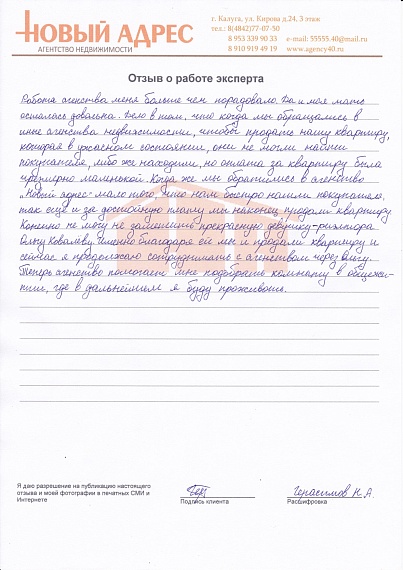 НОВЫЙ АДРЕС
АГЕНТСТВО НЕДВИЖИМОСТИ
г. Калуга, ул. Кирова д.24, 3 этаж
тел.: 8(4842)77-07-50
8 953 339 90 33 e-mail: 55555.40@mail.ru
8 910 919 49 19 www.agency40.ru
Отзыв о работе эксперта
Работа агенства меня больше чем порадовало. Да и моя мать
осталась довольна. Дело в том, что когда мы обращались в
иные агенства недвижимости, чтобы продать нашу квартиру,
которая в ужасном состоянии, они не могли найти
покупателя, либо же находили, но оплата за квартиру была
чрезмерно маленькой. Когда же мы обратились в агенство
„Новый адрес" мало того, что нам быстро нашли покупателя,
так ещё и за достойную плату мы наконец продали квартиру
Конечно не могу не заметить прекрасную девушку-риэлтора
Ольгу Ковалёву. Именно благодаря ей мы и продали квартиру и
сейчас я продолжаю сотрудничать с агенством через Ольгу.
Теперь агенство помогает мне подобрать комнату в общежи-
тии, где в дальнейшем я буду проживать.
Я даю разрешение на публикацию настоящего
отзыва и моей фотографии в печатных СМИ и
Интернете
Подпись клиента
Герасимов Н.А.
Расшифровка